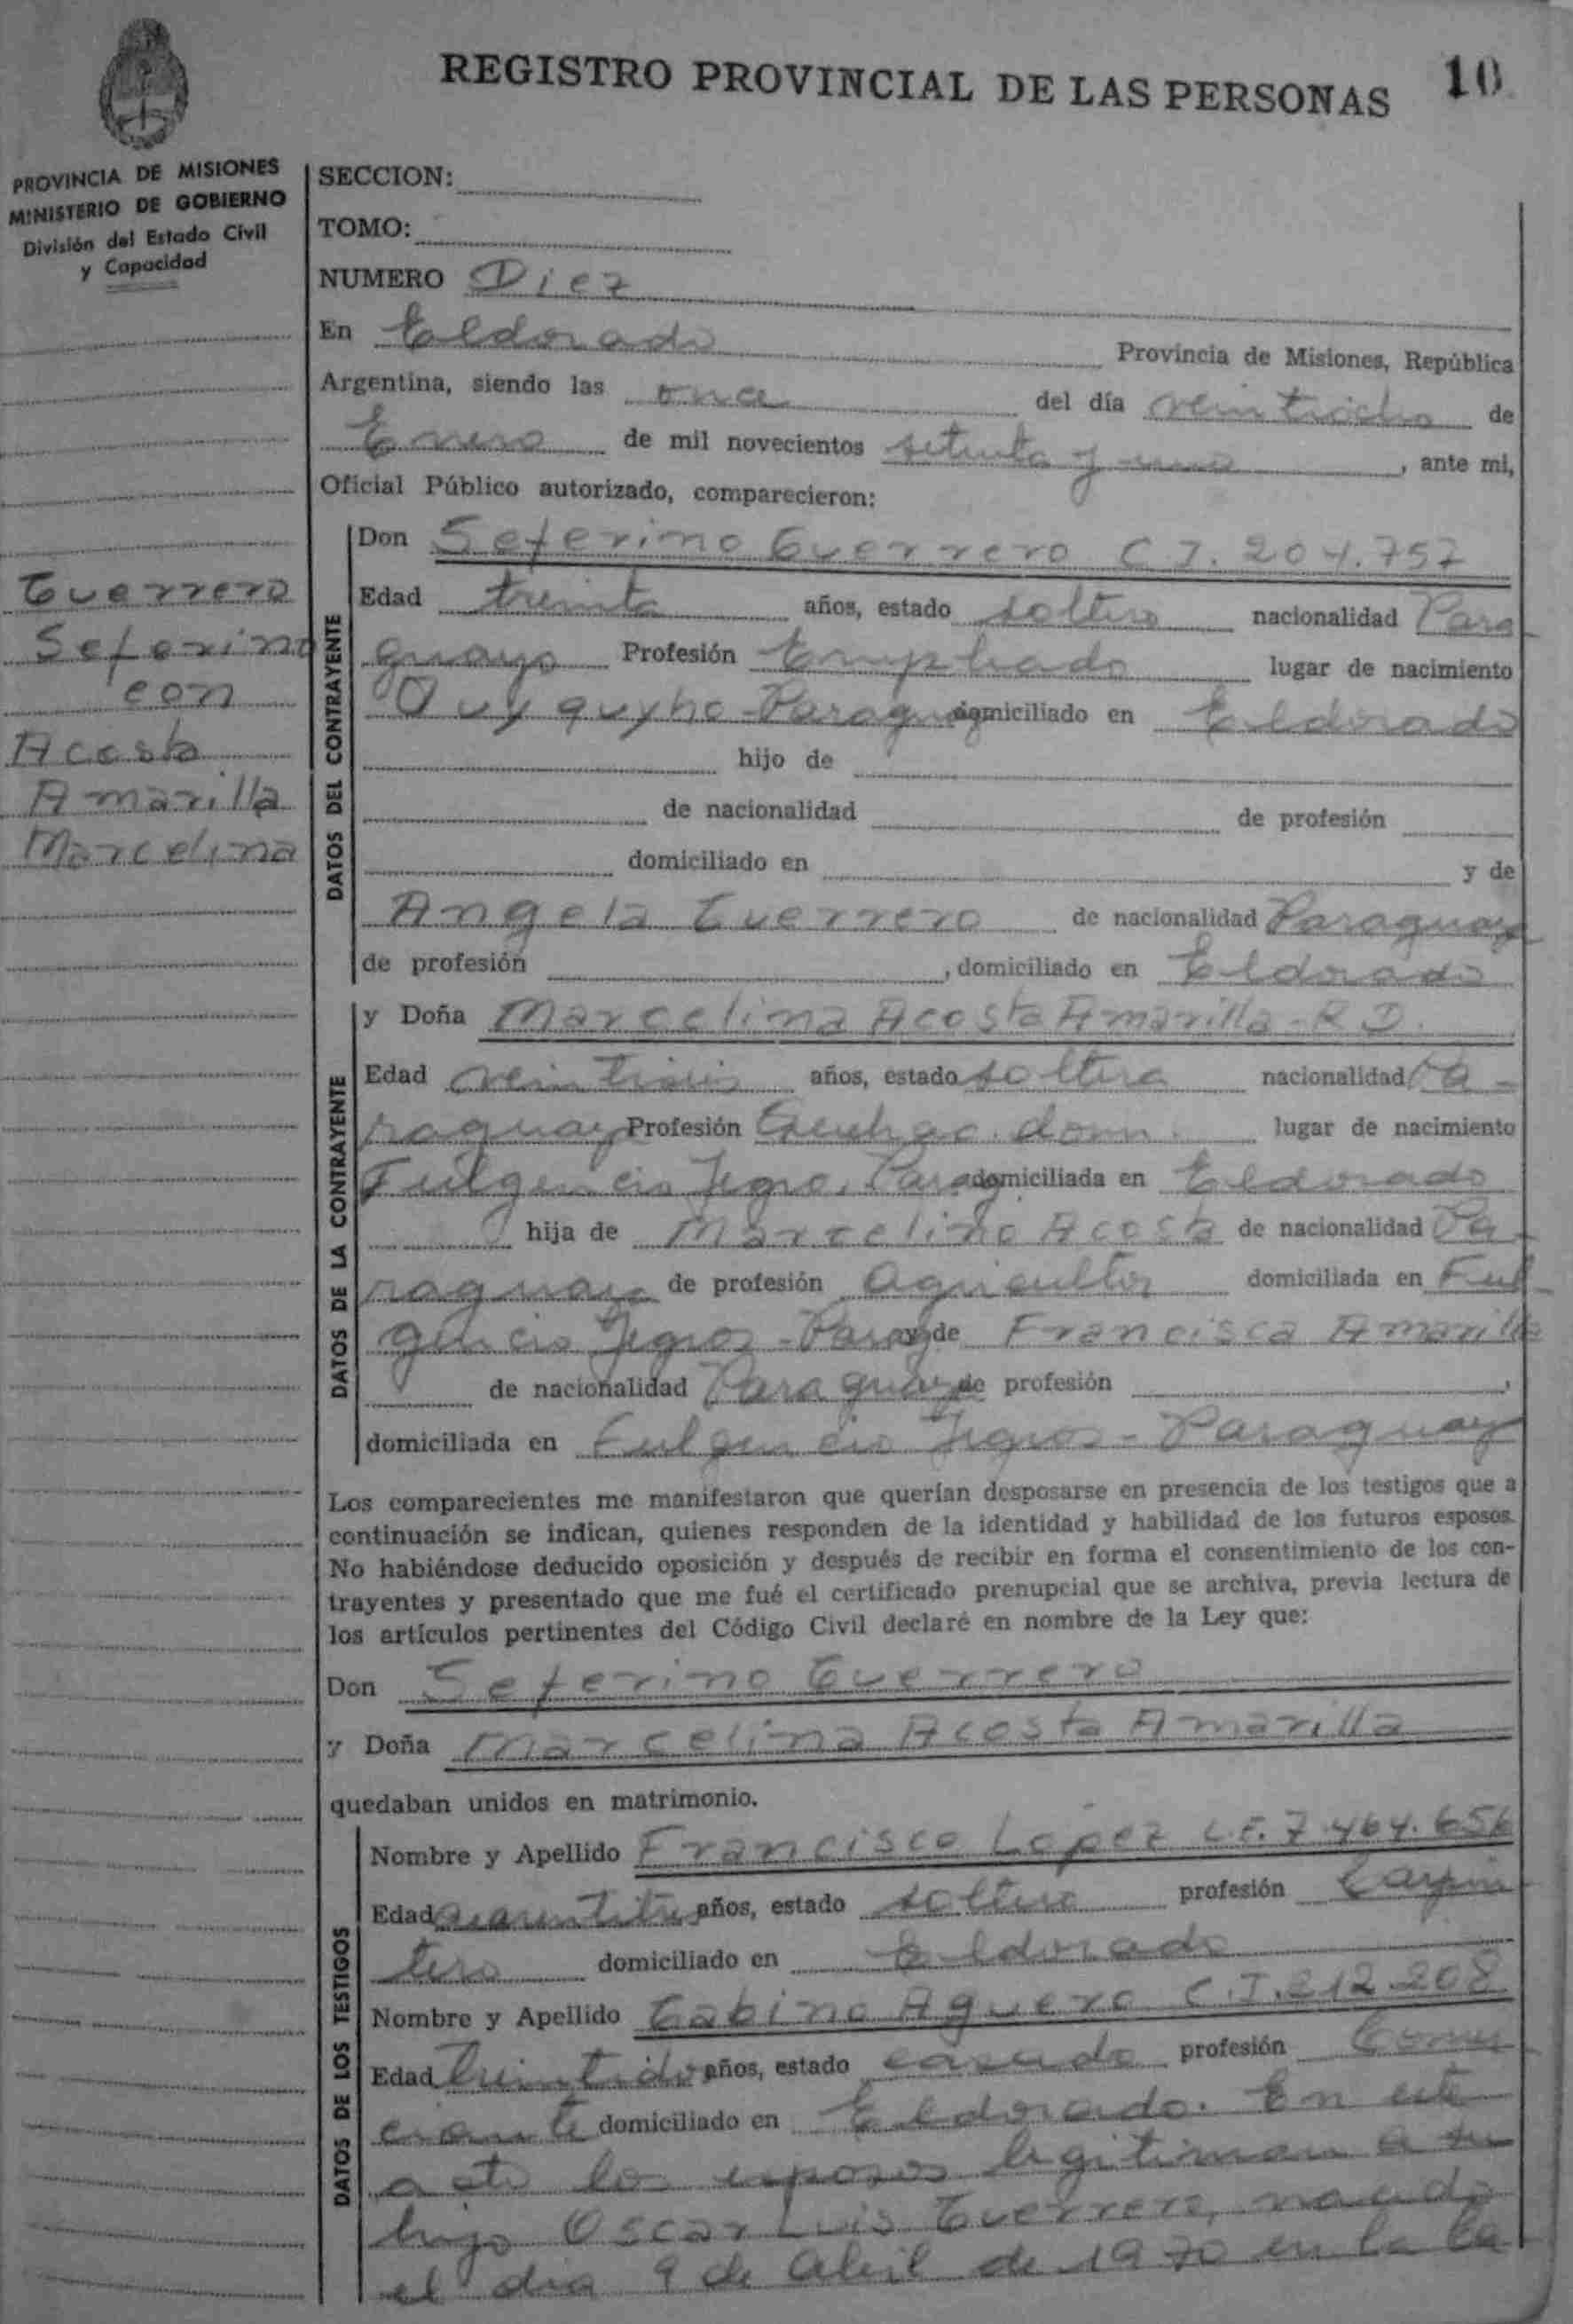 REGISTRO PROVINCIAL DE LAS PERSONAS 10
PROVINCIA DE MISIONES
MINISTERIO DE GOBIERNO
División del Estado Civil
y Capacidad
Guerrero
Seferino
con
Acosta
Amarilla
Marcelina
SECCION:
TOMO:
NUMERO Diez
En Eldorado Provincia de Misiones, República
Argentina, siendo las once del día veintiocho de
Enero de mil novecientos setenta y uno, ante mi,
Oficial Público autorizado, comparecieron:
DATOS DEL CONTRAYENTE
Don Seferino Guerrero C I. 204.757
Edad treinta años, estado soltero nacionalidad Para-
guayo Profesión Empleado lugar de nacimiento
Quyquyho-Paraguay domiciliado en Eldorado
hijo de
de nacionalidad de profesión
domiciliado en y de
Angela Guerrero de nacionalidad Paraguaya
de profesión , domiciliado en Eldorado
DATOS DE LA CONTRAYENTE
y Doña Marcelina Acosta Amarilla - R D.
Edad años, estado soltera nacionalidad Pa-
raguaya Profesión Quehac. dom. lugar de nacimiento
Fulgencio Yegro, Parag domiciliada en Eldorado
hija de Marcelino Acosta de nacionalidad Pa-
raguaya de profesión agricultor domiciliada en Ful-
gencio Yegros - Parag y de Francisca Amarilla
de nacionalidad Paraguaya de profesión ,
domiciliada en Fulgencio Yegros - Paraguay
Los comparecientes me manifestaron que querían desposarse en presencia de los testigos que a
continuación se indican, quienes responden de la identidad y habilidad de los futuros esposos.
No habiéndose deducido oposición y después de recibir en forma el consentimiento de los con-
trayentes y presentado que me fué el certificado prenupcial que se archiva, previa lectura de
los artículos pertinentes del Código Civil declaré en nombre de la Ley que:
Don Seferino Guerrero
y Doña Marcelina Acosta Amarilla
quedaban unidos en matrimonio.
DATOS DE LOS TESTIGOS
Nombre y Apellido Francisco Lopez L.E. 7.464.656
Edad cuarentitres años, estado soltero profesión Carpin-
tero domiciliado en Eldorado
Nombre y Apellido Gabino Aguero C.I. 212.208
Edad treintidos años, estado casado profesión Comer-
ciante domiciliado en Eldorado. En este
acto los esposos legitiman a su
hijo Oscar Luis Guerrero, nacido
el dia 9 de Abril de 1970 en la